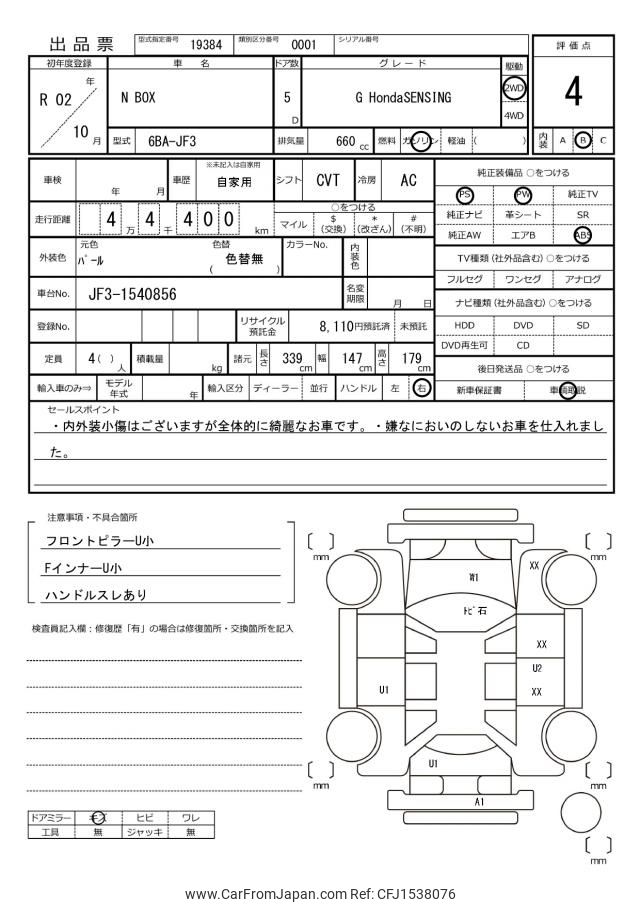 出品票 型式指定番号 19384 類別区分番号 0001 シリアル番号
評価点
4
内装 A B C
初年度登録 車名 ドア数 グレード 駆動
R 02 年 10 月
N BOX
5 D
G HondaSENSING
2WD
4WD
型式 6BA-JF3 排気量 660 cc 燃料 ガソリン 軽油 ( )
車検 年 月 車歴 ※未記入は自家用 自家用 シフト CVT 冷房 AC
走行距離 4 万 4 千 4 0 0 km
○をつける
マイル $ (交換) * (改ざん) # (不明)
外装色 元色 パール 色替 ( 色替無 ) カラーNo. 内装色
車台No. JF3-1540856 名変期限 月 日
登録No. リサイクル預託金 8,110円預託済 未預託
定員 4( ) 人 積載量 kg 諸元 長さ 339 cm 幅 147 cm 高さ 179 cm
輸入車のみ⇒ モデル年式 年 輸入区分 ディーラー 並行 ハンドル 左 右
純正装備品 ○をつける
PS PW 純正TV
純正ナビ 革シート SR
純正AW エアB ABS
TV種類 (社外品含む) ○をつける
フルセグ ワンセグ アナログ
ナビ種類 (社外品含む) ○をつける
HDD DVD SD
DVD再生可 CD
後日発送品 ○をつける
新車保証書 車輌取説
セールスポイント
・内外装小傷はございますが全体的に綺麗なお車です。・嫌なにおいのしないお車を仕入れまし
た。
注意事項・不具合箇所
フロントピラーU小
FインナーU小
ハンドルスレあり
検査員記入欄：修復歴「有」の場合は修復箇所・交換箇所を記入
ドアミラー キズ ヒビ ワレ
工具 無 ジャッキ 無
mm
mm
W1
XX
トビ石
XX
U2
XX
U1
U1
A1
mm
mm
mm
www.CarFromJapan.com Ref: CFJ1538076